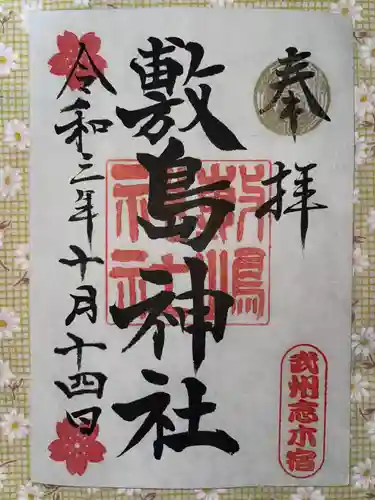 奉拝
敷島神社
令和三年十月十四日
敷嶋神社
武州志木宿